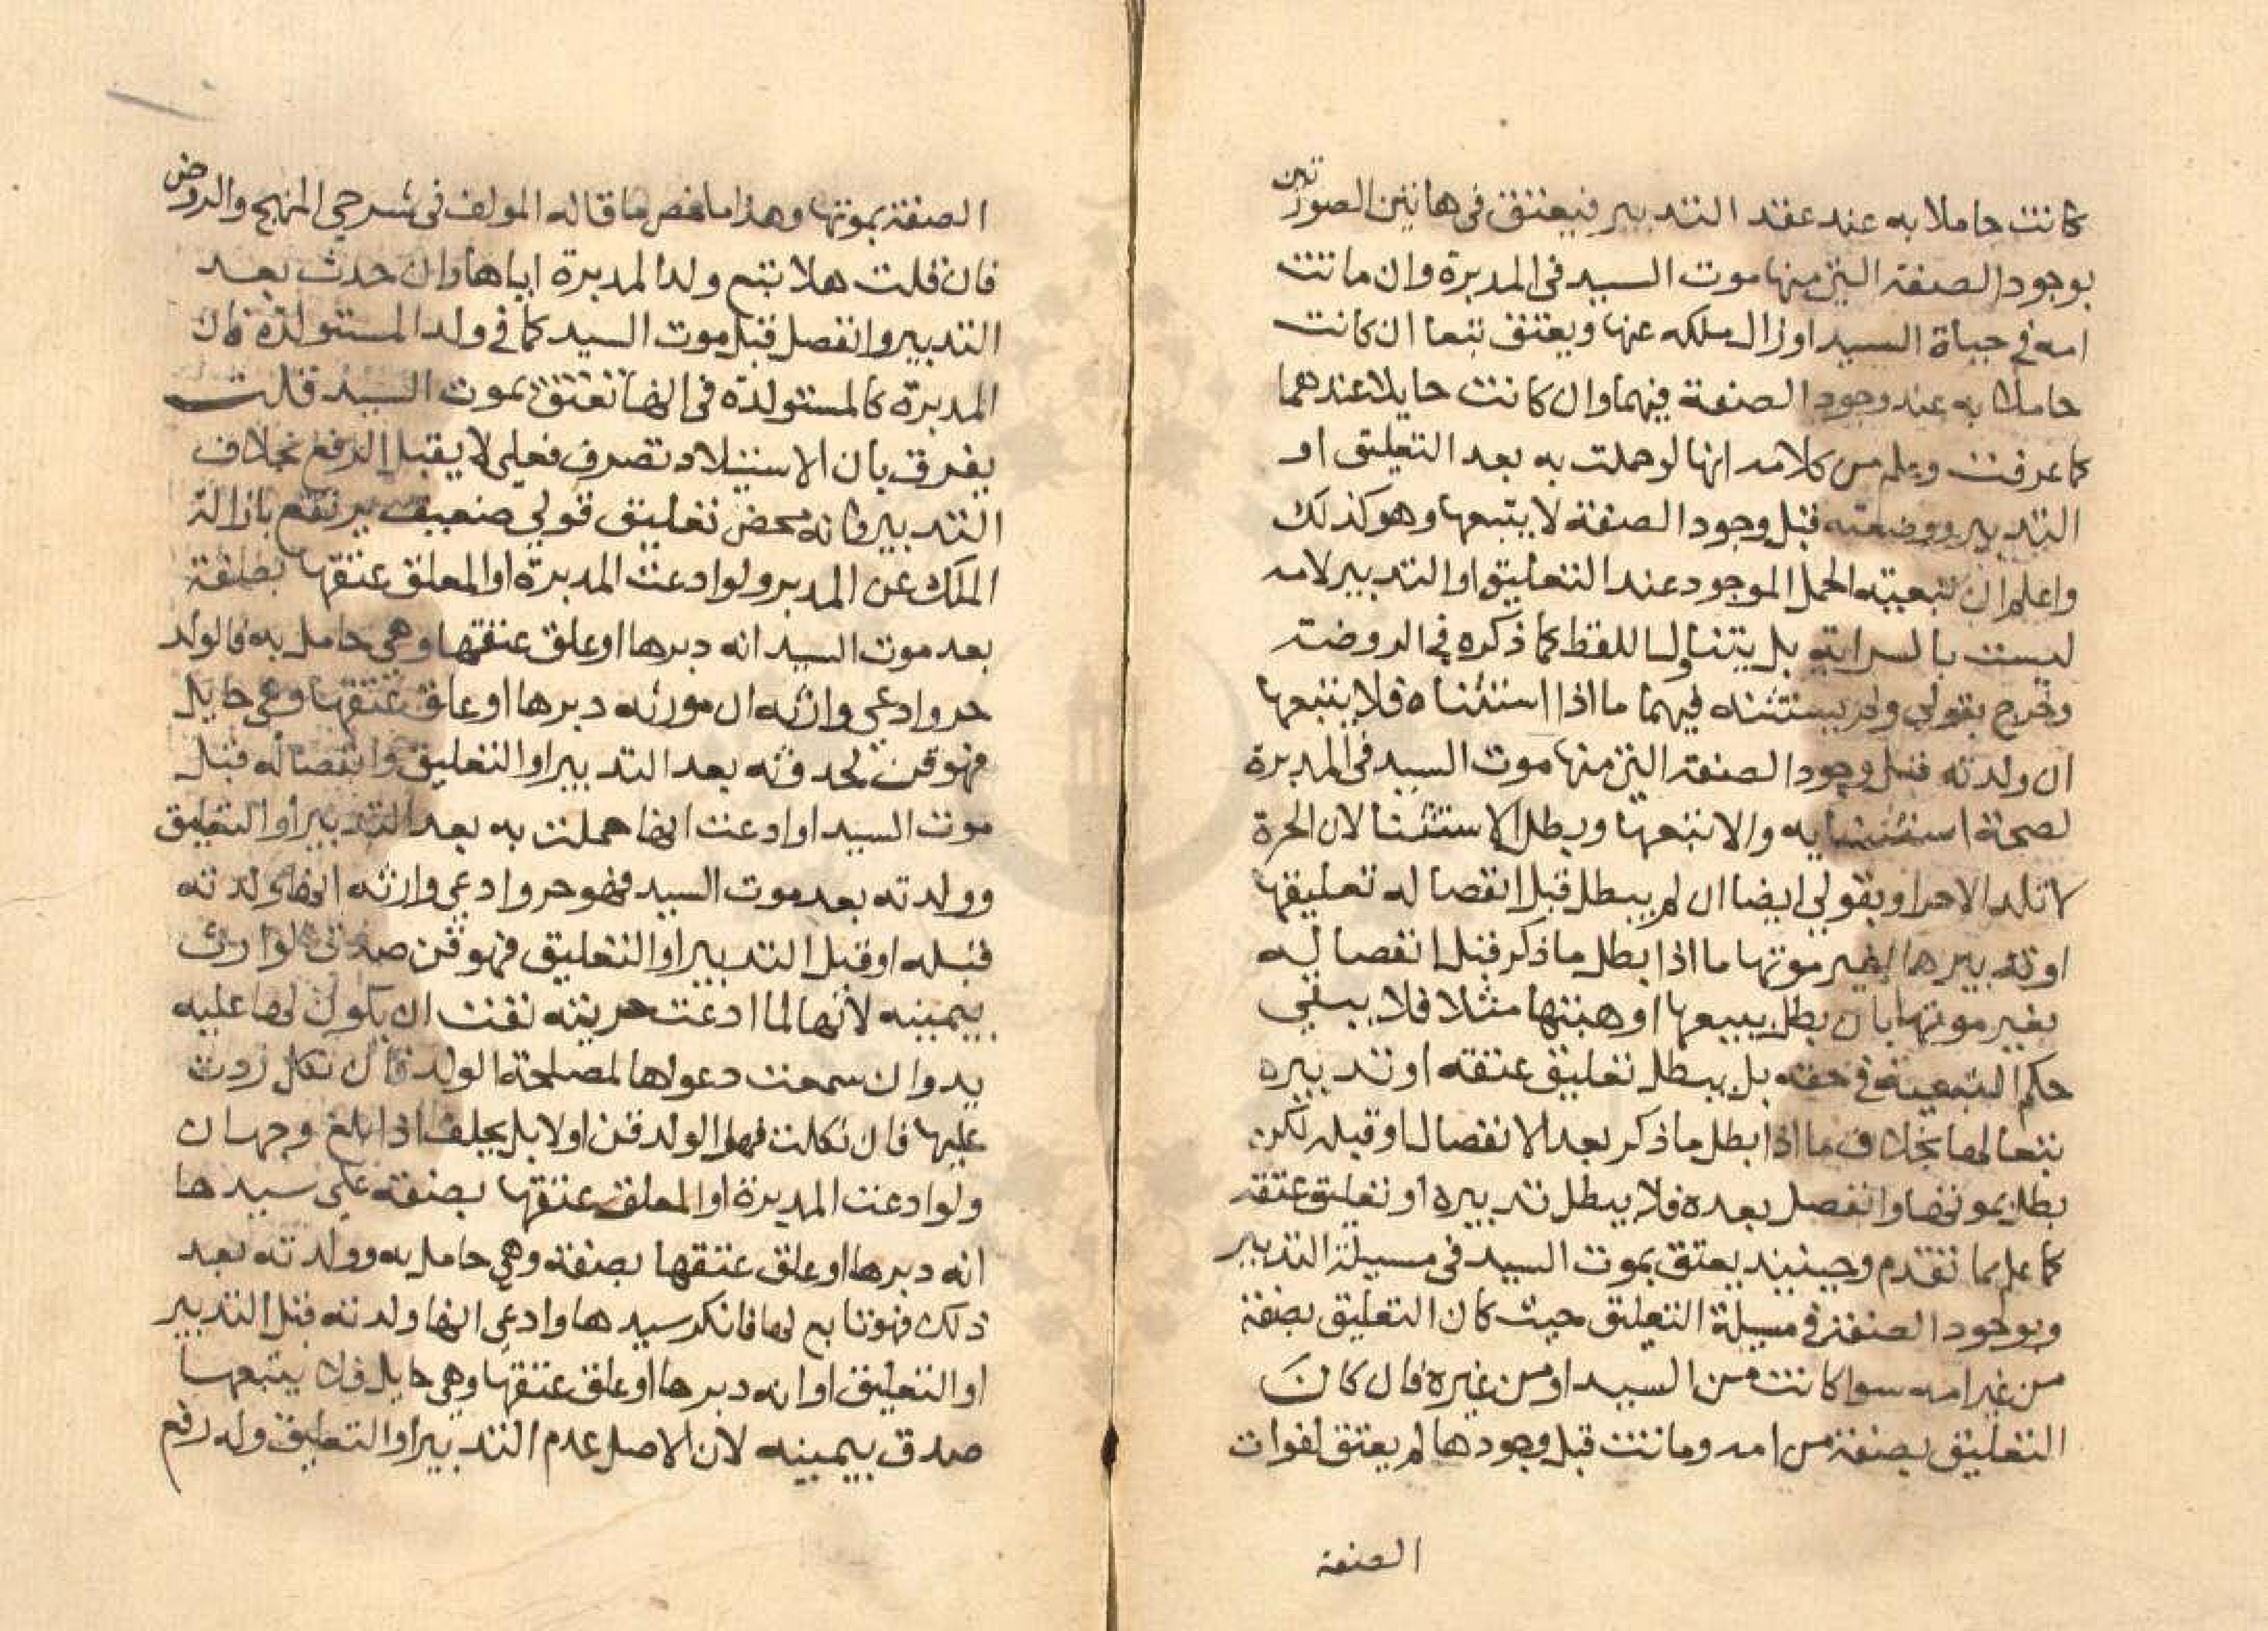 كانت حاملا به عند عقد التدبير فيعتق في هاتين الصورتين
بوجود الصفة التي منها موت السيد في المدبرة وان ماتت
امه في حياة السيد او زال ملكه عنها ويعتق تبعا ان كانت
حاملا به عند وجود الصفة فيهما وان كانت حايلا عندهما
كما عرفت وعلم من كلامه انها لو حملت به بعد التعليق او
التدبير ووضعته قبل وجود الصفة لا يتبعها وهو كذلك
واعلم ان تبعيته الحمل الموجود عند التعليق او التدبير لامه
ليست بالسراية بل يتناول اللفظ كما ذكره في الروضة
وخرج بقولي ولم يستثنه فيهما ما اذا استثناه فلا يتبعها
ان ولدته قبل وجود الصفة التي منها موت السيد في المدبرة
لصحة استثنايه والا تبعها وبطل الاستثنا لان الحرة
لا تلد الا حرا وبقولي ايضا ان لم يبطل قبل انفصاله تعليقها
او تدبيرها بغير موتها ما اذا بطل ما ذكر قبل انفصاله
بغير موتها بان بطل ببيعها او هبتها مثلا فلا يبقي
حكم التبعية في حقه بل يبطل تعليق عتقه او تدبيره
تبعا لها بخلاف ما اذا بطل ما ذكر بعد الانفصال او قبله لكن
بطل بموتها وانفصل بعده فلا يبطل تدبيره او تعليق عتقه
كما علم مما تقدم وحينيذ يعتق بموت السيد في مسيلة التدبير
وبوجود الصفة في مسيلة التعليق حيث كان التعليق بصفة
من غير امه سوا كانت من السيد او من غيره فان كان
التعليق بصفة من امه وماتت قبل وجودها لم يعتق لفوات
الصفة
الصفة بموتها وهذا ملخص ما قاله المولف في شرحي المنهج والروض
فان قلت هلا تبع ولد المدبرة اياها وان حدث بعد
التدبير وانفصل قبل موت السيد كما في ولد المستولدة فان
المدبرة كالمستولدة في انها تعتق بموت السيد قلت
يفرق بان الاستيلاد تصرف فعلي لا يقبل الرفع بخلاف
التدبير فانه محض تعليق قولي ضعيف يرتفع بازالة
الملك عن المدبر ولو ادعت المدبرة او المعلق عتقها بصفة
بعد موت السيد انه دبرها او علق عتقها وهي حامل به فالولد
حر وادعي وارثه ان مورثه دبرها او علق عتقها وهي حايل
فهو قن لحدوثه بعد التدبير او التعليق وانفصاله قبل
موت السيد او ادعت انها حملت به بعد التدبير او التعليق
وولدته بعد موت السيد فهو حر وادعي وارثه انها ولدته
قبله او قبل التدبير او التعليق فهو قن صدق الوارث
بيمينه لانها لما ادعت حريته نفت ان يكون لها عليه
يد وان سمعت دعواها لمصلحة الولد فان نكل ردت
عليها فان نكلت فهل الولد قن او لا بل يحلف اذا بلغ وجهان
ولو ادعت المدبرة او المعلق عتقها بصفة علي سيدها
انه دبرها او علق عتقها بصفة وهي حامل به وولدته بعد
ذلك فهو تابع لها فانكر سيدها وادعي انها ولدته قبل التدبير
او التعليق او انه دبرها او علق عتقها وهي حايل فلا يتبعها
صدق بيمينه لان الاصل عدم التدبير او التعليق وله رفع